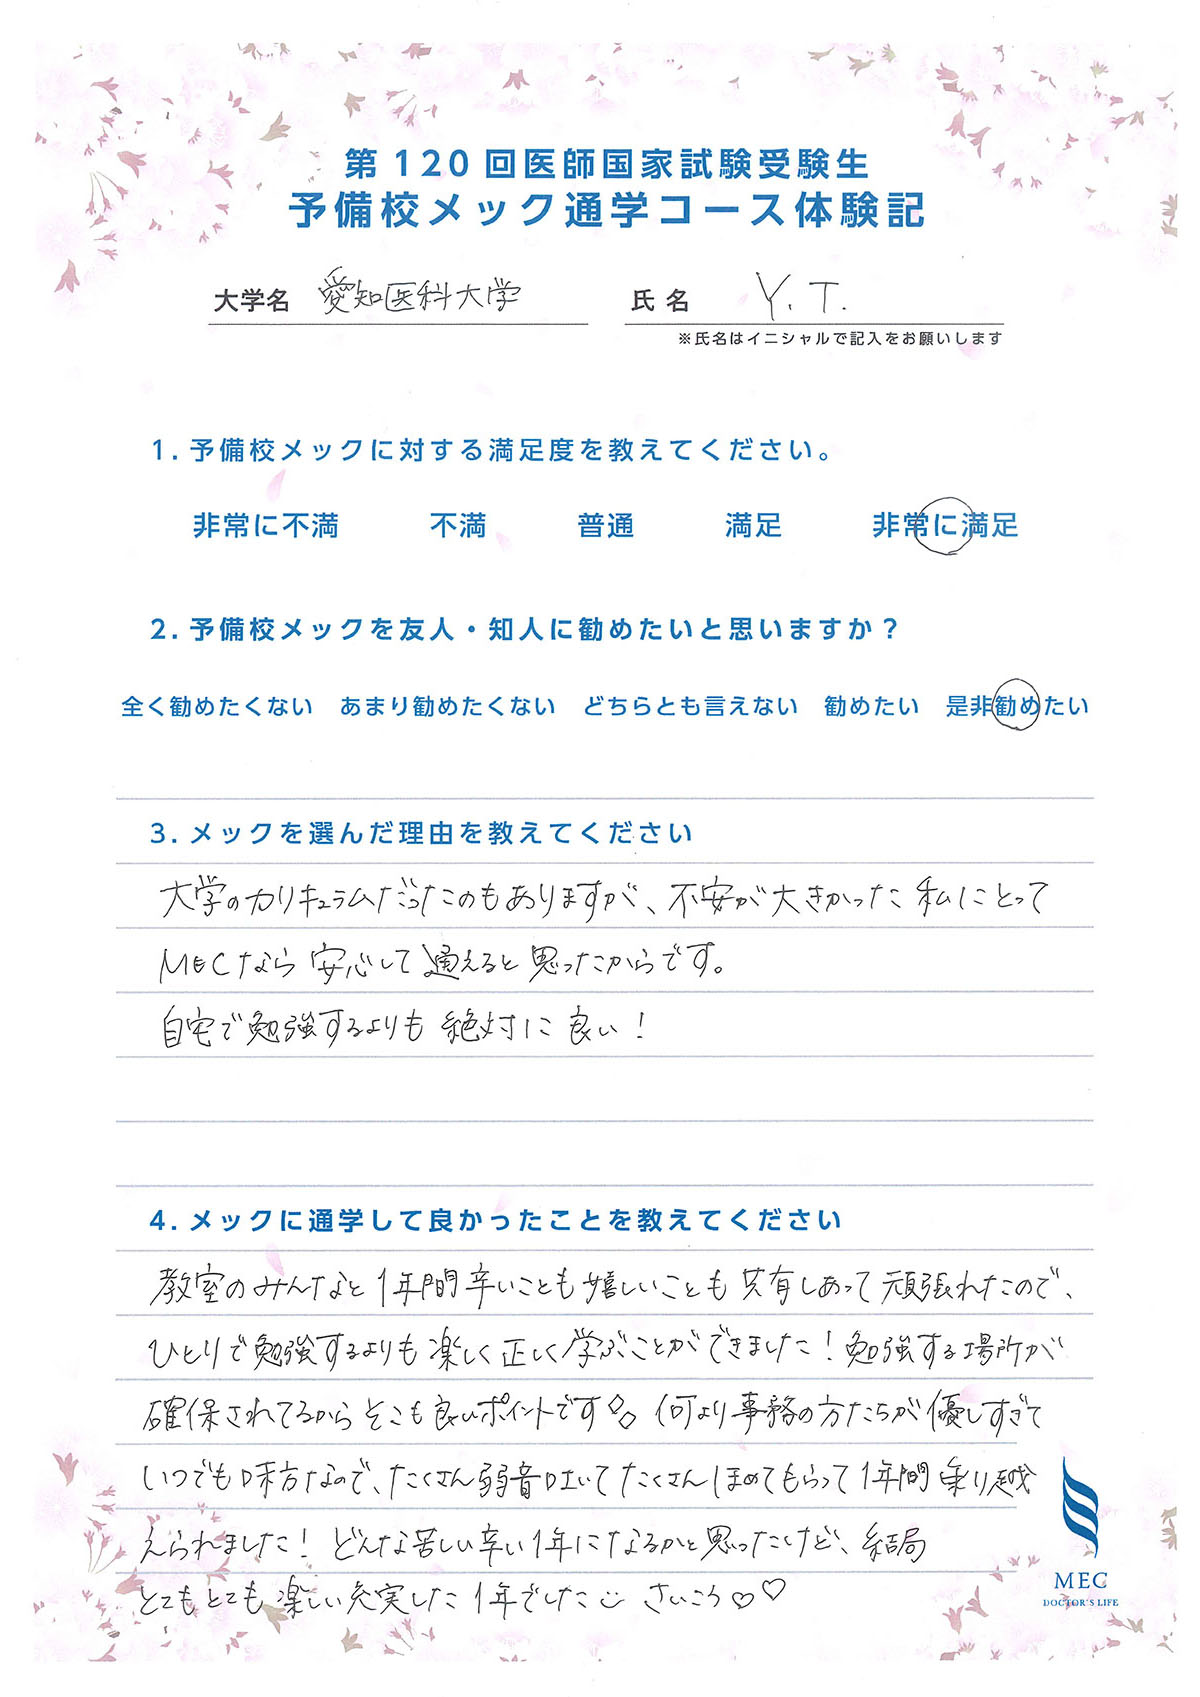 第120回医師国家試験受験生
予備校メック通学コース体験記
大学名 愛知医科大学 氏名 Y. T.
※氏名はイニシャルで記入をお願いします
1. 予備校メックに対する満足度を教えてください。
非常に不満 不満 普通 満足 非常に満足
2. 予備校メックを友人・知人に勧めたいと思いますか？
全く勧めたくない あまり勧めたくない どちらとも言えない 勧めたい 是非勧めたい
3. メックを選んだ理由を教えてください
大学のカリキュラムだったのもありますが、不安が大きかった私にとって
MECなら安心して通えると思ったからです。
自宅で勉強するよりも絶対に良い！
4. メックに通学して良かったことを教えてください
教室のみんなと1年間辛いことも嬉しいことも共有しあって頑張れたので、
ひとりで勉強するよりも楽しく正しく学ぶことができました！勉強する場所が
確保されてるからそこも良いポイントです 何より事務の方たちが優しすぎて
いつでも味方なので、たくさん弱音吐いてたくさんほめてもらって1年間乗り越
えられました！どんな苦しい辛い1年になるかと思ったけど、結局
とてもとても楽しい充実した1年でした さいこう♡♡
MEC
DOCTOR'S LIFE